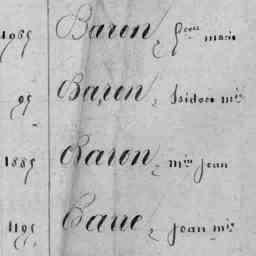 1985 Baron, fcois marie
95 Baron, Isidore mie
1885 Baron, mie Jean
1195 Barre, Jean mie